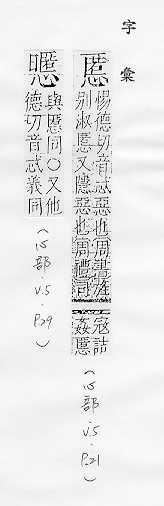 字彙
慝
惕德切音忒惡也周書旌
别淑慝又隱惡也周禮詞
寇詰
姦慝
(心部 V.5. P.21)
與慝同○又他
德切音忒義同
(心部 V.5 P.29)